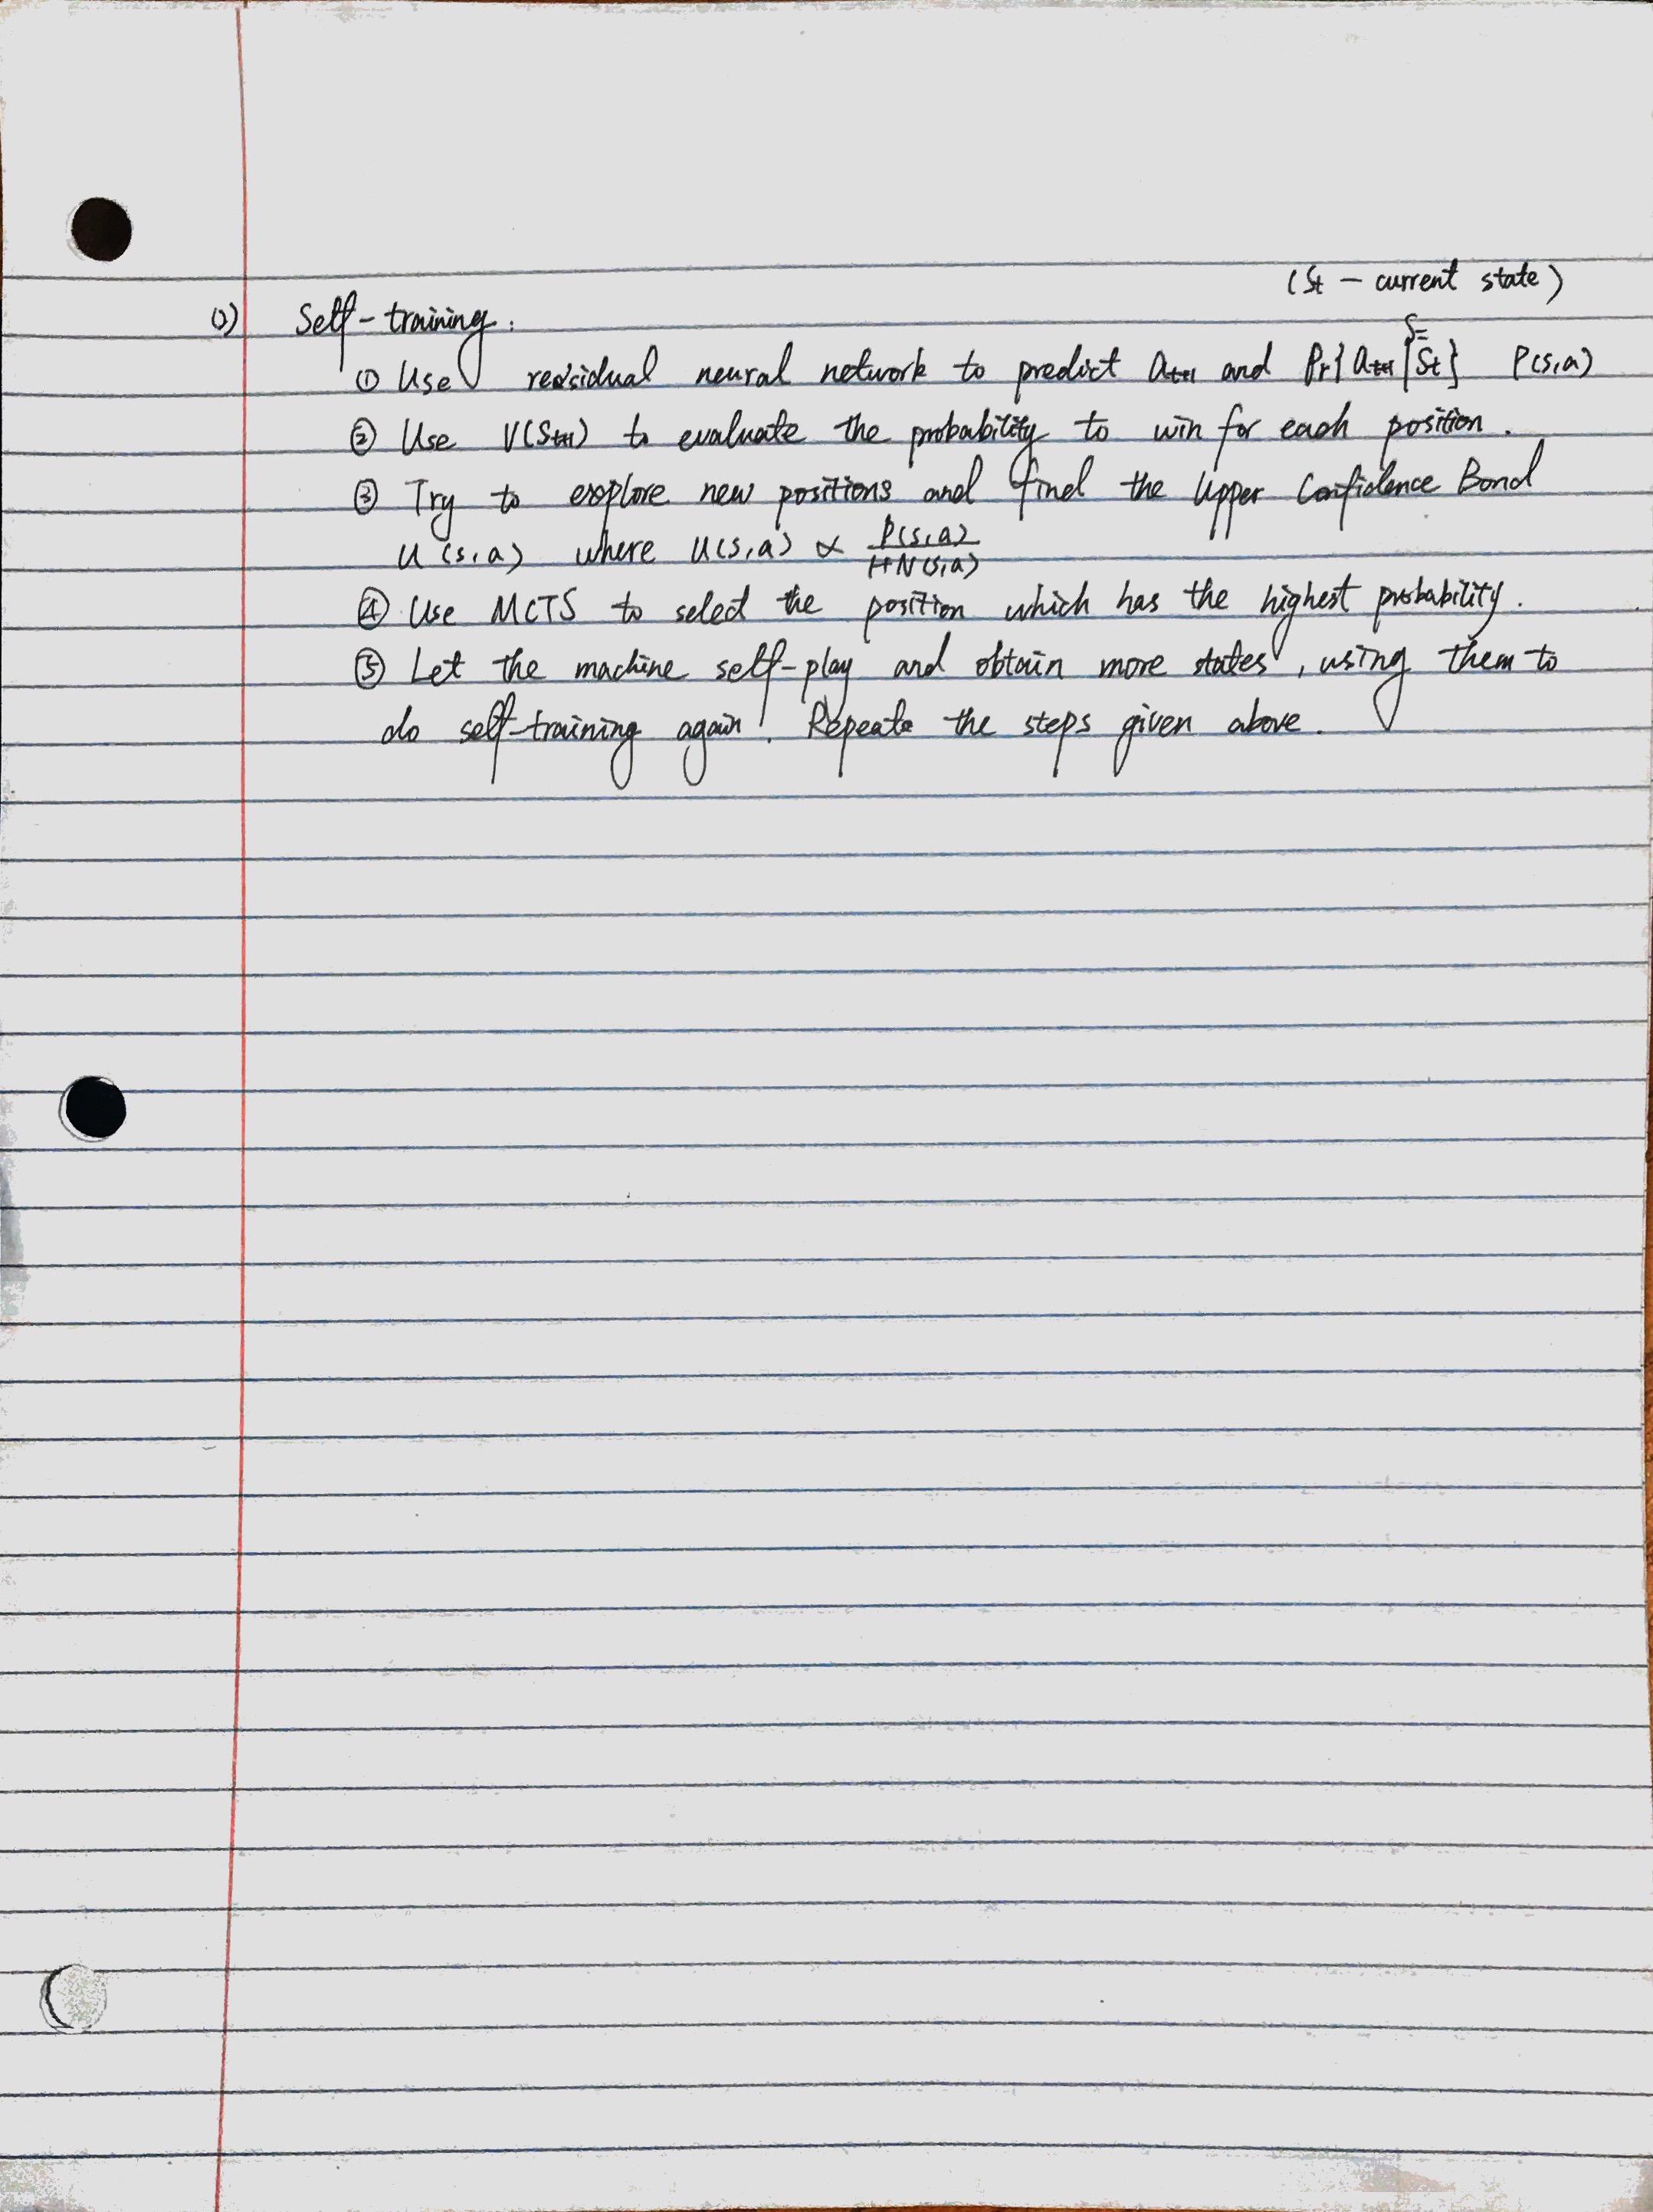 (St – current state)
(2) Self-training:
① Use residual neural network to predict at+1 and Pr{at+1|S=St} P(s,a)
② Use V(St+1) to evaluate the probability to win for each position.
③ Try to explore new positions and find the Upper Confidence Bond
U(s,a) where U(s,a) ∝ P(s,a)/1+N(s,a)
④ Use MCTS to select the position which has the highest probability.
⑤ Let the machine self-play and obtain more states, using them to
do self-training again. Repeate the steps given above.